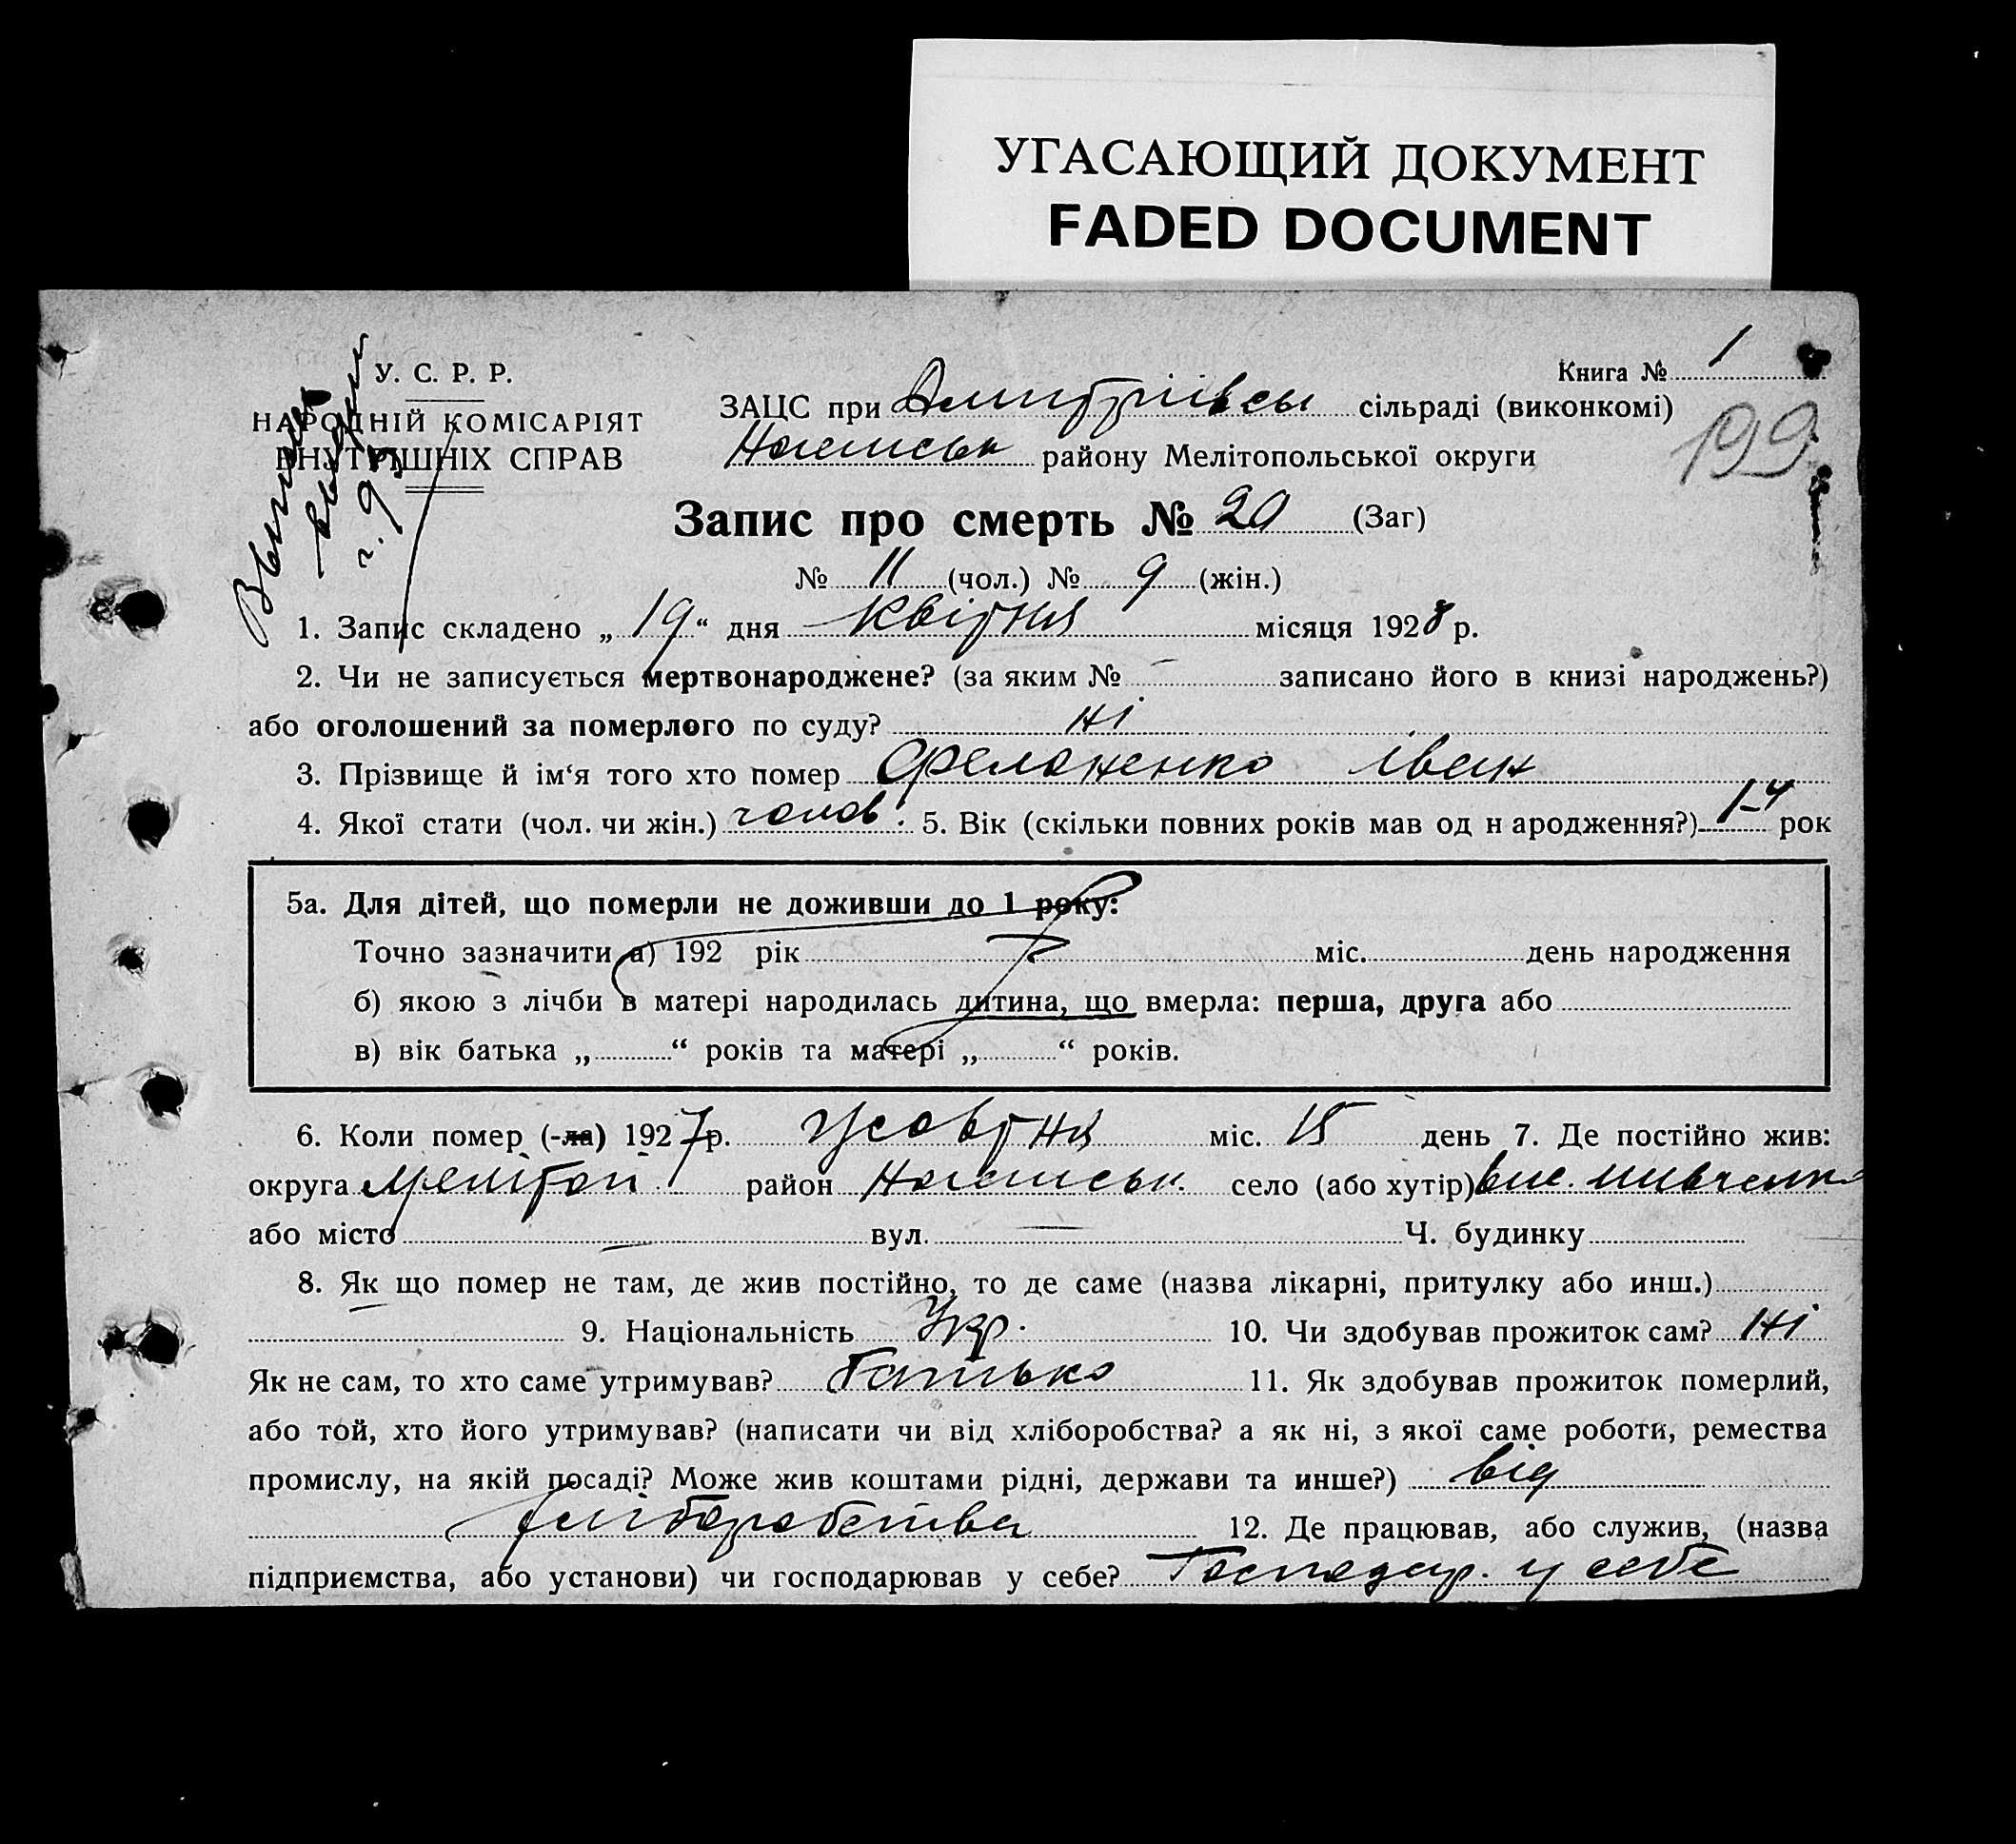 УГАСАЮЩИЙ ДОКУМЕНТ
FADED DOCUMENT
У. С. Р. Р.
НАРОДНІЙ КОМІСАРІЯТ
ВНУТРІШНІХ СПРАВ
Книга № 1
199
ЗАЦС при сільраді (виконкомі)
району Мелітопольської округи
Запис про смерть № 20 (Заг)
№ 11 (чол.) № 9 (жін.)
1. Запис складено „ 19 “ дня квітня місяця 1928 р.
2. Чи не записується мертвонароджене? (за яким № — записано його в книзі народжень?)
або оголошений за померлого по суду? ні
3. Прізвище й ім‘я того хто помер Іван
4. Якої стати (чол. чи жін.) чолов. 5. Вік (скільки повних років мав од н ародження?) рок
5а. Для дітей, що померли не доживши до 1 року:
Точно зазначити а) 192 рік міс. день народження
б) якою з лічби в матері народилась дитина, що вмерла: перша, друга або
в) вік батька „ “ років та матері „ “ років.
6. Коли помер (-ла) 1927 р. Жовтня міс. 15 день 7. Де постійно жив:
округа Меліtоп. район село (або хутір)
або місто — вул. — Ч. будинку
8. Як що помер не там, де жив постійно, то де саме (назва лікарні, притулку або инш.)
— 9. Національність Укр. 10. Чи здобував прожиток сам? Ні
Як не сам, то хто саме утримував? батько 11. Як здобував прожиток померлий,
або той, хто його утримував? (написати чи від хліборобства? а як ні, з якої саме роботи, ремества
промислу, на якій посаді? Може жив коштами рідні, держави та инше?) від
хліборобства 12. Де працював, або служив, (назва
підприємства, або установи) чи господарював у себе? Господар. у себе